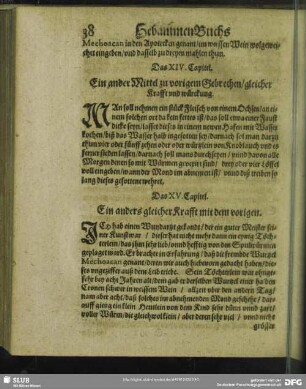 38 Hebammen Buchs
Mechoacan in den Apotecken genant / im weissen Wein wolgewei-
chet eingeben / und dasselb zu dreyen mahlen thun.
Das XIV. Capitel.
Ein ander Mittel zu vorigem Gebrechen / gleicher
Krafft und würckung.
MAn soll nehmen ein stück Fleisch von einem Ochsen / an einem
solchen ort da kein fettes ist / das soll etwa einer Faust
dick seyn / lasset dieses in einem newen Hafen mit Wasser
kochen / biß das Wasser halb ingesotten sey / darnach sol man darzu
thun vier oder fünff zehen oder würtzlein von Knoblauch und es
ferner sieden lassen / darnach soll mans durchseyen / und davon alle
Morgen denen so mit Würmen geplagt sind / drey oder vier Löffel
voll eingeben / wann der Mond im abnemmen ist / und diß treiben so
lang dieses gesottene wehret.
Das XV. Capitel.
Ein anders gleicher Krafft mit dem vorigen.
ICh hab einen Wundartzt gekandt / der ein guter Meister sei-
ner Kunst war / dieser hat nicht mehr dann ein eintzig Töch-
terlein / das ihm sehr lieb / und hefftig von den Spulwürmen
geplaget ward. Er bracht in erfahrung / daß die frembde Wurtzel
Mechoacan genant / deren wir auch hiebevorn gedacht haben / die-
ses ungeziffer auß dem Leib triebe. Sein Töchterlein war ohnge-
fehr bey acht Jahren alt / dem gab er derselben Wurtzel
Cronen schwer in weissem Wein / allzeit über den andern Tag /
nam aber acht / daß solches im abnehmenden Mond geschehe / dar-
auff gieng ein klein Heutlein von dem Kind sehr dünn und zart /
voller Würm / die gleich wol klein / aber deren sehr viel /
grösser